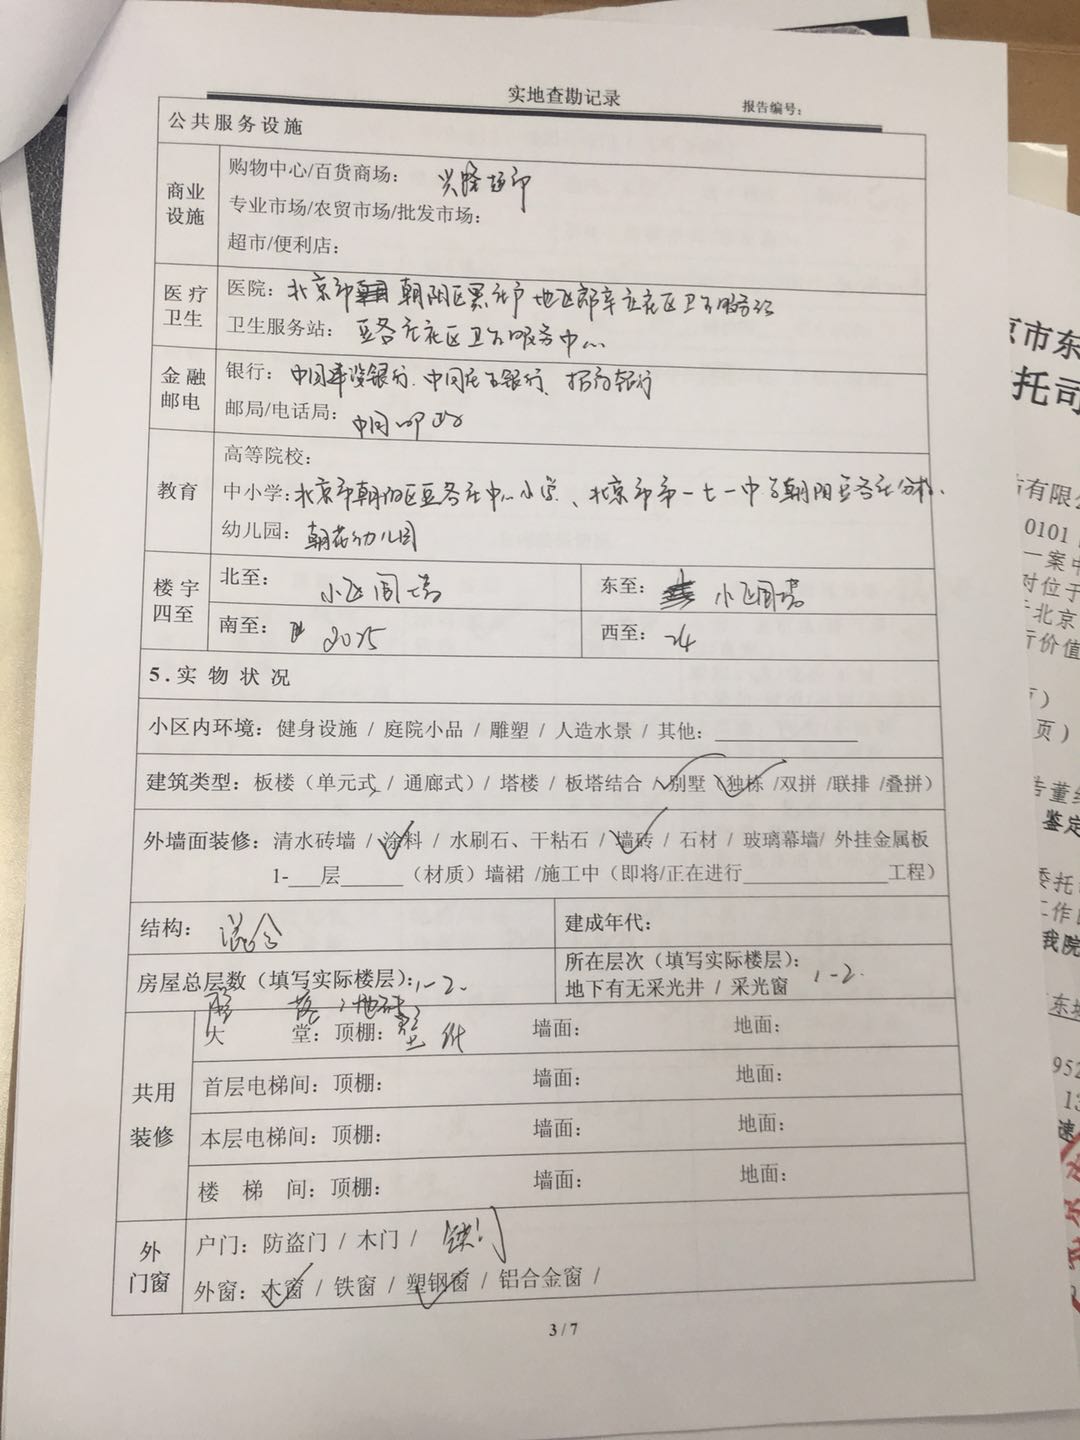 实地查勘记录
报告编号：
公共服务设施
商业设施
购物中心/百货商场：兴隆超市
专业市场/农贸市场/批发市场：
超市/便利店：
医疗卫生
医院：北京市朝阳区黑庄户地区郎辛庄社区卫生服务站
卫生服务站：豆各庄社区卫生服务中心
金融邮电
银行：中国建设银行、中国农业银行、招商银行
邮局/电话局：中国邮政
教育
高等院校：
中小学：北京市朝阳区豆各庄中心小学、北京市第一七一中学朝阳豆各庄分校、
幼儿园：朝花幼儿园
楼宇四至
北至：小区围墙
东至：小区围墙
南至：2025
西至：24
5.实物状况
小区内环境：健身设施 / 庭院小品 / 雕塑 / 人造水景 / 其他：
建筑类型：板楼（单元式 / 通廊式）/ 塔楼 / 板塔结合 / 别墅（独栋 /双拼 /联排 /叠拼）
外墙面装修：清水砖墙 / 涂料 / 水刷石、干粘石 / 墙砖 / 石材 / 玻璃幕墙/ 外挂金属板
1-___层______（材质）墙裙 /施工中（即将/正在进行______________工程）
结构：混合
建成年代：
房屋总层数（填写实际楼层）：1-2.
所在层次（填写实际楼层）：1-2.
地下有无采光井 / 采光窗
共用装修
大堂：顶棚：
墙面：
地面：
首层电梯间：顶棚：
墙面：
地面：
本层电梯间：顶棚：
墙面：
地面：
楼梯间：顶棚：
墙面：
地面：
外门窗
户门：防盗门 / 木门 / 铁门
外窗：木窗 / 铁窗 / 塑钢窗 / 铝合金窗 /
3 / 7
京市东
托司
有限公
0101
一案中
对位于
北京
行价值
页）
鉴定
委托
工作
我院
952
13